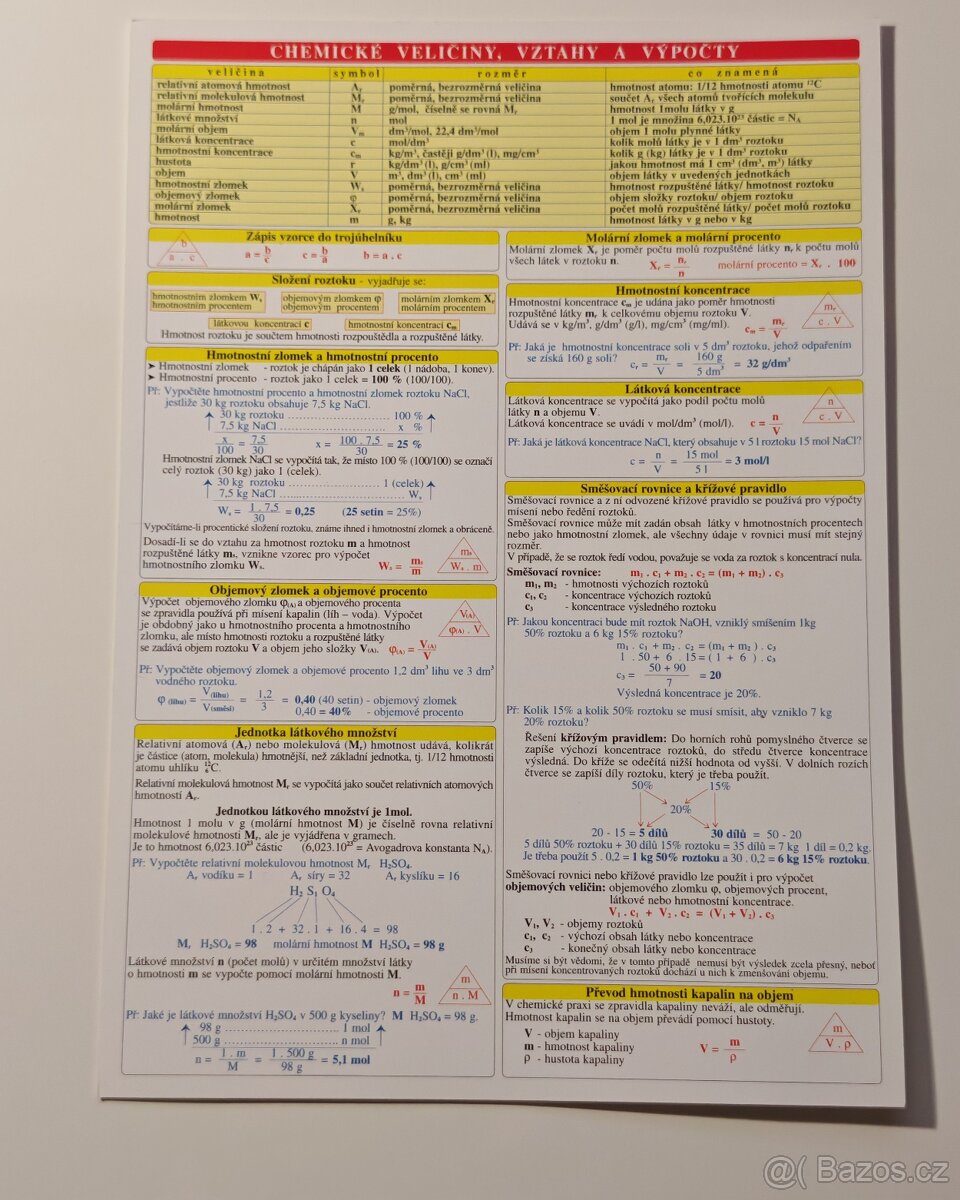 CHEMICKÉ VELIČINY, VZTAHY A VÝPOČTY
veličina symbol rozměr co znamená
relativní atomová hmotnost Aᵣ poměrná, bezrozměrná veličina hmotnost atomu: 1/12 hmotnosti atomu ¹²C
relativní molekulová hmotnost Mᵣ poměrná, bezrozměrná veličina součet Aᵣ všech atomů tvořících molekulu
molární hmotnost M g/mol, číselně se rovná Mᵣ hmotnost 1molu látky v g
látkové množství n mol 1 mol je množina 6,023.10²³ částic = Nᴀ
molární objem Vₘ dm³/mol, 22,4 dm³/mol objem 1 molu plynné látky
látková koncentrace c mol/dm³ kolik molů látky je v 1 dm³ roztoku
hmotnostní koncentrace cₘ kg/m³, častěji g/dm³ (l), mg/cm³ kolik g (kg) látky je v 1 dm³ roztoku
hustota r kg/dm³ (l), g/cm³ (ml) jakou hmotnost má 1 cm³ (dm³, m³) látky
objem V m³, dm³ (l), cm³ (ml) objem látky v uvedených jednotkách
hmotnostní zlomek Wₛ poměrná, bezrozměrná veličina hmotnost rozpuštěné látky/ hmotnost roztoku
objemový zlomek φ poměrná, bezrozměrná veličina objem složky roztoku/ objem roztoku
molární zlomek Xᵣ poměrná, bezrozměrná veličina počet molů rozpuštěné látky/ počet molů roztoku
hmotnost m g, kg hmotnost látky v g nebo v kg
Zápis vzorce do trojúhelníku
b
a . c
a = b/c c = b/a b = a . c
Složení roztoku - vyjadřuje se:
hmotnostním zlomkem Wₛ objemovým zlomkem φ molárním zlomkem Xᵣ
hmotnostním procentem objemovým procentem molárním procentem
látkovou koncentrací c hmotnostní koncentrací cₘ
Hmotnost roztoku je součtem hmotnosti rozpouštědla a rozpuštěné látky.
Hmotnostní zlomek a hmotnostní procento
➤ Hmotnostní zlomek - roztok je chápán jako 1 celek (1 nádoba, 1 konev).
➤ Hmotnostní procento - roztok jako 1 celek = 100 % (100/100).
Př: Vypočtěte hmotnostní procento a hmotnostní zlomek roztoku NaCl,
jestliže 30 kg roztoku obsahuje 7,5 kg NaCl.
30 kg roztoku ........................ 100 %
7,5 kg NaCl ........................ x %
x/100 = 7,5/30 x = 100 . 7,5/30 = 25 %
Hmotnostní zlomek NaCl se vypočítá tak, že místo 100 % (100/100) se označí
celý roztok (30 kg) jako 1 (celek).
30 kg roztoku ........................ 1 (celek)
7,5 kg NaCl ........................ Wₛ
Wₛ = 1 . 7,5/30 = 0,25 (25 setin = 25%)
Vypočítáme-li procentické složení roztoku, známe ihned i hmotnostní zlomek a obráceně.
Dosadí-li se do vztahu za hmotnost roztoku m a hmotnost
rozpuštěné látky mₛ, vznikne vzorec pro výpočet
hmotnostního zlomku Wₛ.
Wₛ = mₛ/m
mₛ
Wₛ . m
Objemový zlomek a objemové procento
Výpočet objemového zlomku φ(A) a objemového procenta
se zpravidla používá při mísení kapalin (líh – voda). Výpočet
je obdobný jako u hmotnostního procenta a hmotnostního
zlomku, ale místo hmotnosti roztoku a rozpuštěné látky
se zadává objem roztoku V a objem jeho složky V(A). φ(A) = V(A)/V
V(A)
φ(A) . V
Př: Vypočtěte objemový zlomek a objemové procento 1,2 dm³ lihu ve 3 dm³
vodného roztoku.
φ (lihu) = V(lihu)/V(směsi) = 1,2/3 = 0,40 (40 setin) - objemový zlomek
0,40 = 40% - objemové procento
Jednotka látkového množství
Relativní atomová (Aᵣ) nebo molekulová (Mᵣ) hmotnost udává, kolikrát
je částice (atom, molekula) hmotnější, než základní jednotka, tj. 1/12 hmotnosti
atomu uhlíku ¹²₆C.
Relativní molekulová hmotnost Mᵣ se vypočítá jako součet relativních atomových
hmotností Aᵣ.
Jednotkou látkového množství je 1mol.
Hmotnost 1 molu v g (molární hmotnost M) je číselně rovna relativní
molekulové hmotnosti Mᵣ, ale je vyjádřena v gramech.
Je to hmotnost 6,023.10²³ částic (6,023.10²³ = Avogadrova konstanta Nᴀ).
Př: Vypočtěte relativní molekulovou hmotnost Mᵣ H₂SO₄.
Aᵣ vodíku = 1 Aᵣ síry = 32 Aᵣ kyslíku = 16
H₂ S₁ O₄
1 . 2 + 32 . 1 + 16 . 4 = 98
Mᵣ H₂SO₄ = 98 molární hmotnost M H₂SO₄ = 98 g
Látkové množství n (počet molů) v určitém množství látky
o hmotnosti m se vypočte pomocí molární hmotnosti M.
n = m/M
m
n . M
Př: Jaké je látkové množství H₂SO₄ v 500 g kyseliny? M H₂SO₄ = 98 g.
98 g ........................ 1 mol
500 g ........................ n mol
n = 1 . m/M = 1 . 500 g/98 g = 5,1 mol
Molární zlomek a molární procento
Molární zlomek Xᵣ je poměr počtu molů rozpuštěné látky nᵣ k počtu molů
všech látek v roztoku n. Xᵣ = nᵣ/n molární procento = Xᵣ . 100
Hmotnostní koncentrace
Hmotnostní koncentrace cₘ je udána jako poměr hmotnosti
rozpuštěné látky mᵣ k celkovému objemu roztoku V.
Udává se v kg/m³, g/dm³ (g/l), mg/cm³ (mg/ml). cₘ = mᵣ/V
mᵣ
c . V
Př: Jaká je hmotnostní koncentrace soli v 5 dm³ roztoku, jehož odpařením
se získá 160 g soli? cᵣ = mᵣ/V = 160 g/5 dm³ = 32 g/dm³
Látková koncentrace
Látková koncentrace se vypočítá jako podíl počtu molů
látky n a objemu V.
Látková koncentrace se uvádí v mol/dm³ (mol/l). c = n/V
n
c . V
Př: Jaká je látková koncentrace NaCl, který obsahuje v 5 l roztoku 15 mol NaCl?
c = n/V = 15 mol/5 l = 3 mol/l
Směšovací rovnice a křížové pravidlo
Směšovací rovnice a z ní odvozené křížové pravidlo se používá pro výpočty
mísení nebo ředění roztoků.
Směšovací rovnice může mít zadán obsah látky v hmotnostních procentech
nebo jako hmotnostní zlomek, ale všechny údaje v rovnici musí mít stejný
rozměr.
V případě, že se roztok ředí vodou, považuje se voda za roztok s koncentrací nula.
Směšovací rovnice: m₁ . c₁ + m₂ . c₂ = (m₁ + m₂) . c₃
m₁, m₂ - hmotnosti výchozích roztoků
c₁, c₂ - koncentrace výchozích roztoků
c₃ - koncentrace výsledného roztoku
Př: Jakou koncentraci bude mít roztok NaOH, vzniklý smíšením 1kg
50% roztoku a 6 kg 15% roztoku?
m₁ . c₁ + m₂ . c₂ = (m₁ + m₂) . c₃
1 . 50 + 6 . 15 = ( 1 + 6 ) . c₃
c₃ = 50 + 90/7 = 20
Výsledná koncentrace je 20%.
Př: Kolik 15% a kolik 50% roztoku se musí smísit, aby vzniklo 7 kg
20% roztoku?
Řešení křížovým pravidlem: Do horních rohů pomyslného čtverce se
zapíše výchozí koncentrace roztoků, do středu čtverce koncentrace
výsledná. Do kříže se odečítá nižší hodnota od vyšší. V dolních rozích
čtverce se zapíší díly roztoku, který je třeba použít.
50% 15%
20%
20 - 15 = 5 dílů 30 dílů = 50 - 20
5 dílů 50% roztoku + 30 dílů 15% roztoku = 35 dílů = 7 kg 1 díl = 0,2 kg.
Je třeba použít 5 . 0,2 = 1 kg 50% roztoku a 30 . 0,2 = 6 kg 15% roztoku.
Směšovací rovnici nebo křížové pravidlo lze použít i pro výpočet
objemových veličin: objemového zlomku φ, objemových procent,
látkové nebo hmotnostní koncentrace.
V₁ . c₁ + V₂ . c₂ = (V₁ + V₂) . c₃
V₁, V₂ - objemy roztoků
c₁, c₂ - výchozí obsah látky nebo koncentrace
c₃ - konečný obsah látky nebo koncentrace
Musíme si být vědomi, že v tomto případě nemusí být výsledek zcela přesný, neboť
při mísení koncentrovaných roztoků dochází u nich k zmenšování objemu.
Převod hmotnosti kapalin na objem
V chemické praxi se zpravidla kapaliny neváží, ale odměřují.
Hmotnost kapalin se na objem převádí pomocí hustoty.
V - objem kapaliny
m - hmotnost kapaliny
ρ - hustota kapaliny
V = m/ρ
m
V . ρ
@( Bazos.cz